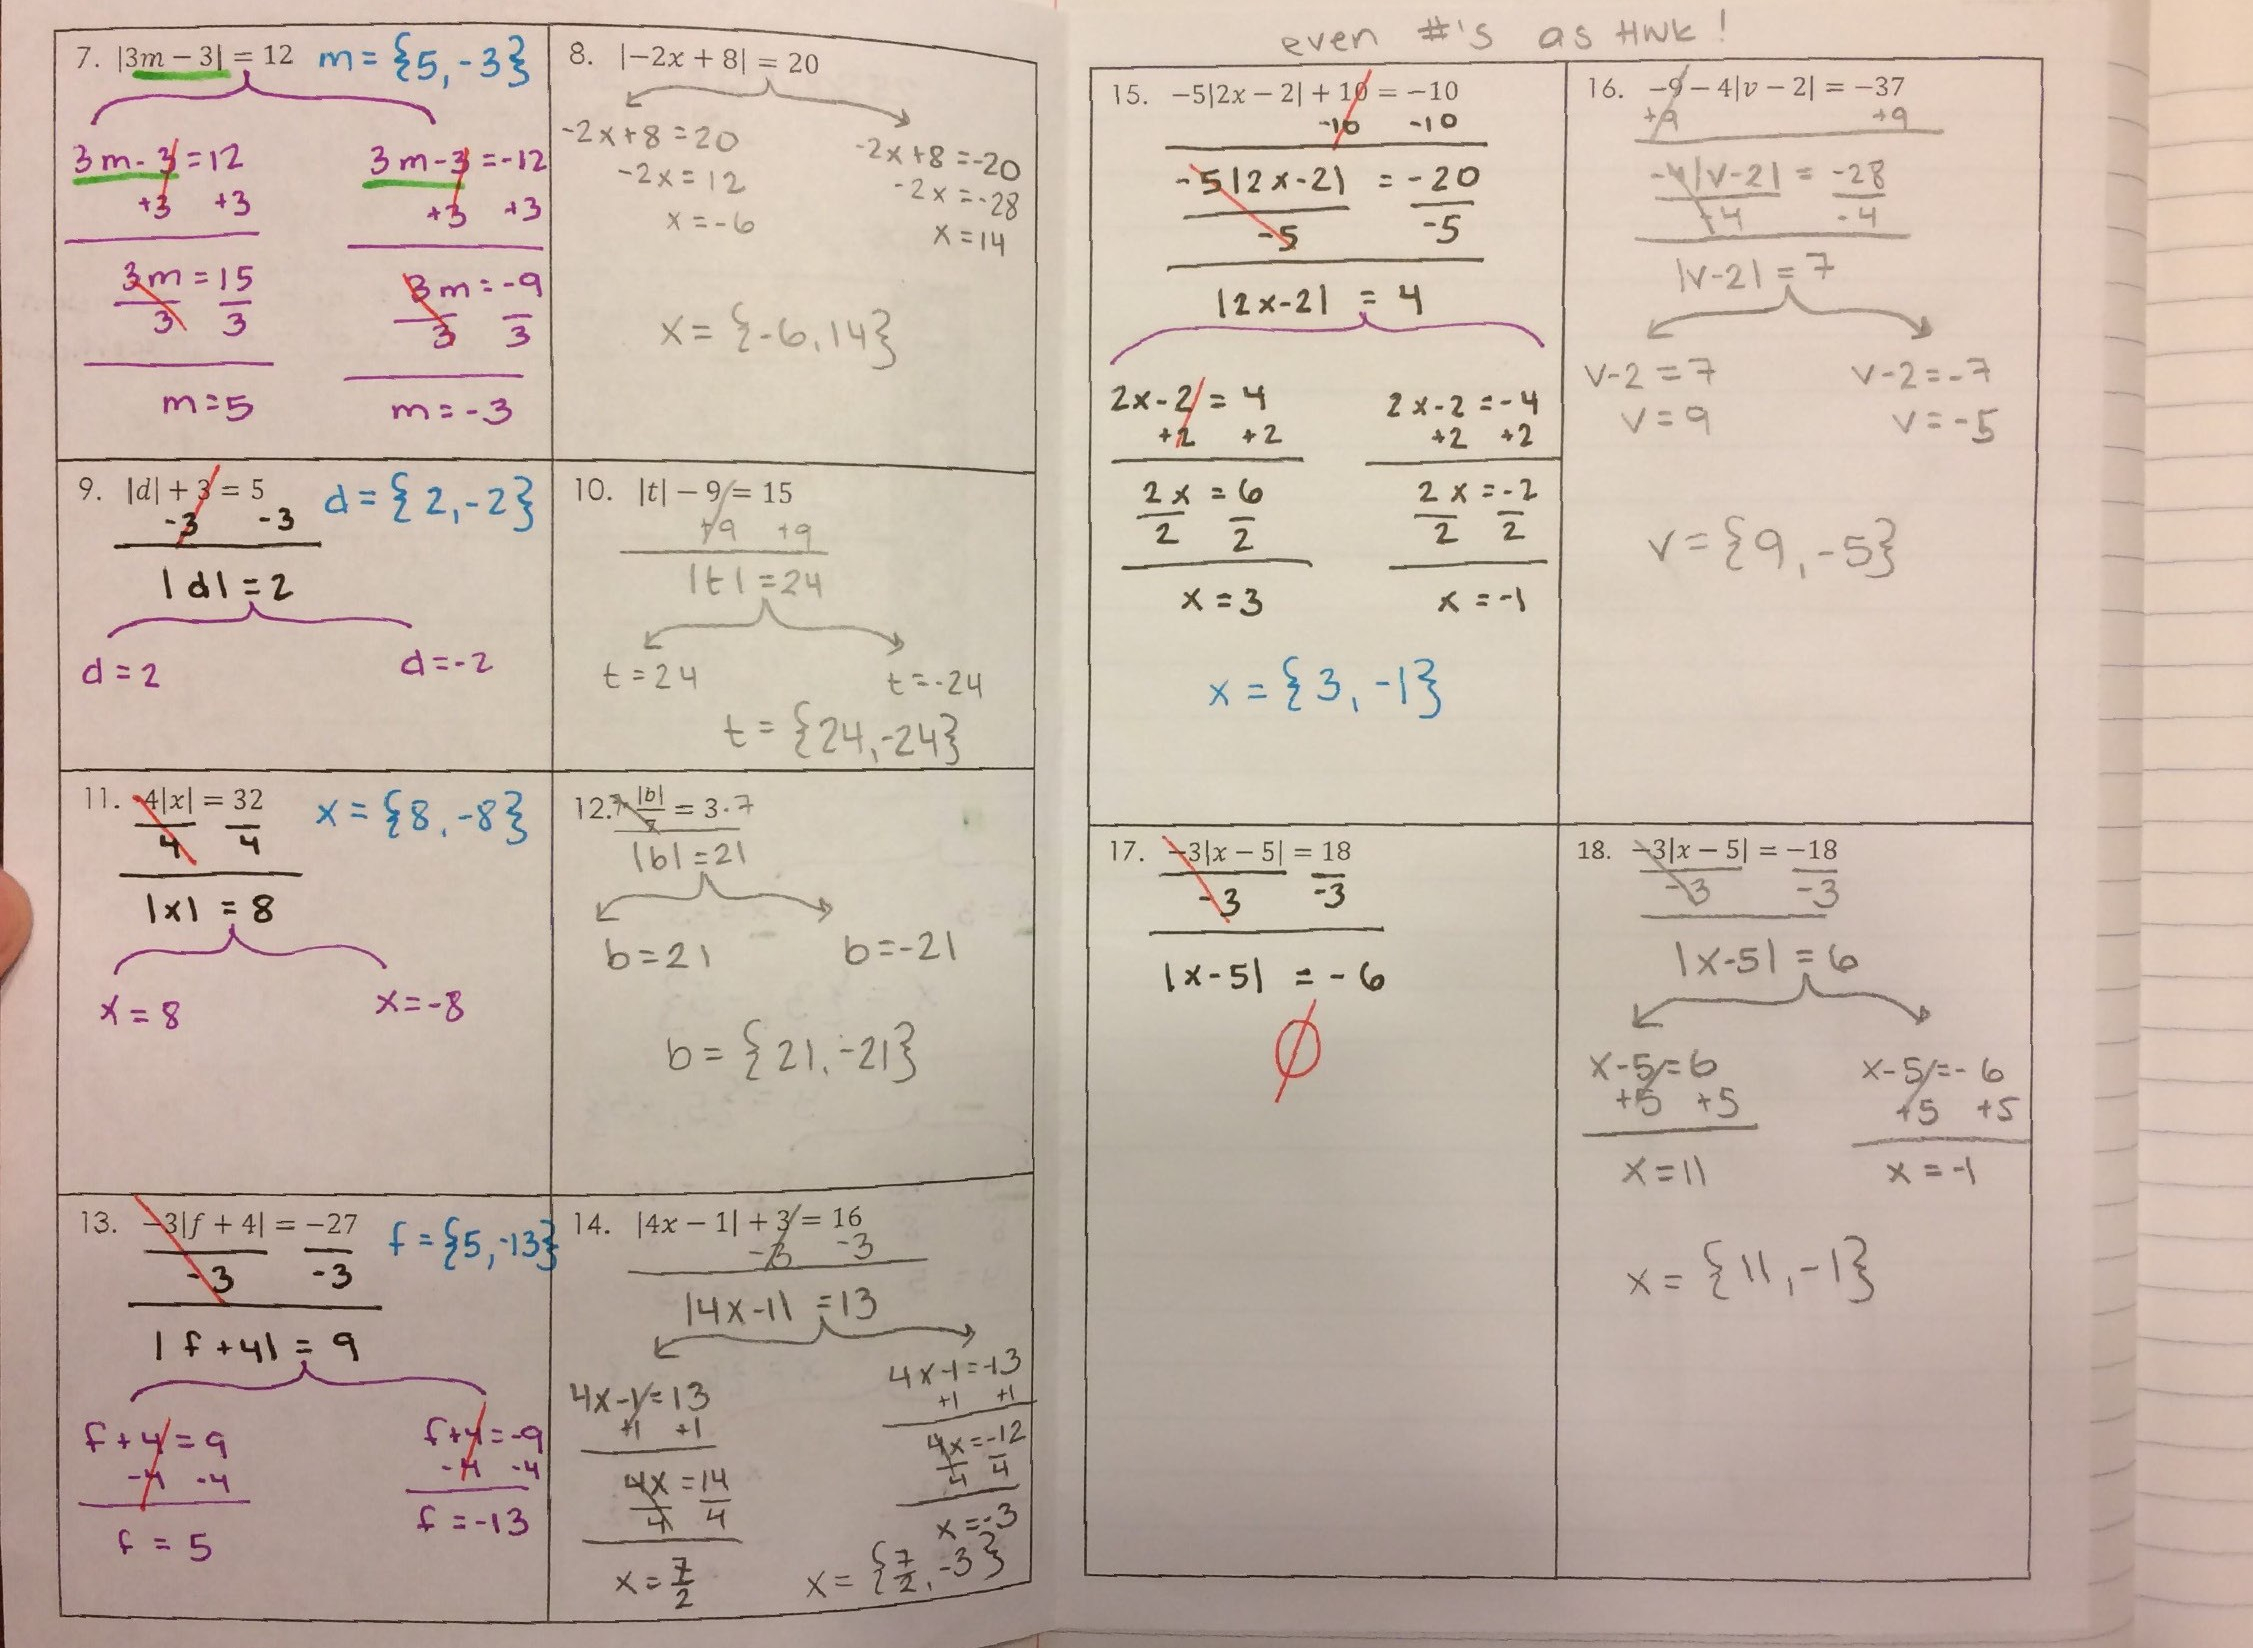 even #'s as HWK!
7. |3m − 3| = 12 m = {5, -3}
3m - 3 = 12 3m - 3 = -12
+3 +3 +3 +3
3m = 15 3m = -9
3 3 3 3
m = 5 m = -3
8. |−2x + 8| = 20
-2x+8 = 20 -2x+8 = -20
-2x = 12 -2x = -28
x = -6 x = 14
x = {-6, 14}
9. |d| + 3 = 5 d = {2, -2}
-3 -3
|d| = 2
d = 2 d = -2
10. |t| − 9 = 15
+9 +9
|t| = 24
t = 24 t = -24
t = {24, -24}
11. 4|x| = 32 x = {8, -8}
4 4
|x| = 8
x = 8 x = -8
12. 7· |b|/7 = 3 · 7
|b| = 21
b = 21 b = -21
b = {21, -21}
13. −3|f + 4| = −27 f = {5, -13}
-3 -3
|f+4| = 9
f+4 = 9 f+4 = -9
-4 -4 -4 -4
f = 5 f = -13
14. |4x − 1| + 3 = 16
-3 -3
|4x-1| = 13
4x-1 = 13 4x-1 = -13
+1 +1 +1 +1
4x = 14 4x = -12
4 4 4 4
x = 7/2 x = -3
x = {7/2, -3}
15. −5|2x − 2| + 10 = −10
-10 -10
-5|2x-2| = -20
-5 -5
|2x-2| = 4
2x-2 = 4 2x-2 = -4
+2 +2 +2 +2
2x = 6 2x = -2
2 2 2 2
x = 3 x = -1
x = {3, -1}
16. −9 − 4|v − 2| = −37
+9 +9
-4|v-2| = -28
-4 -4
|v-2| = 7
v-2 = 7 v-2 = -7
v = 9 v = -5
v = {9, -5}
17. −3|x − 5| = 18
-3 -3
|x-5| = -6
∅
18. −3|x − 5| = −18
-3 -3
|x-5| = 6
x-5 = 6 x-5 = -6
+5 +5 +5 +5
x = 11 x = -1
x = {11, -1}